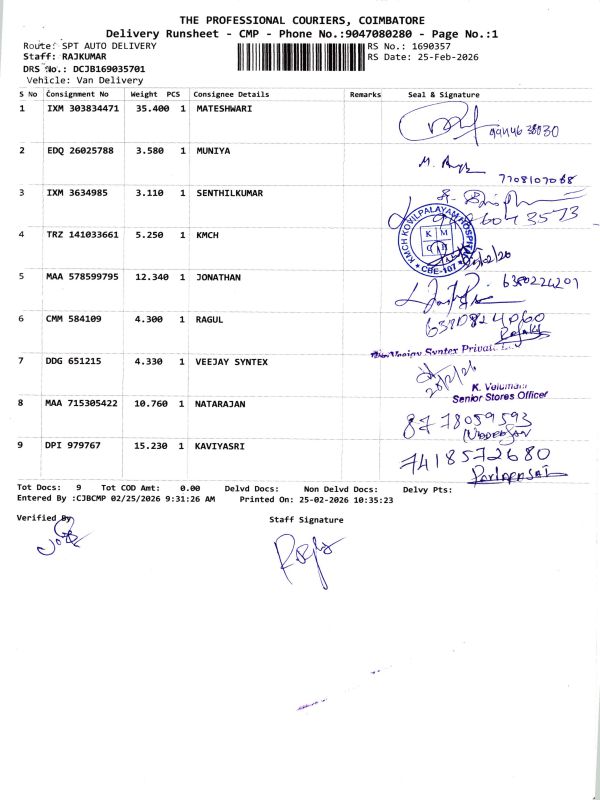 THE PROFESSIONAL COURIERS, COIMBATORE
Delivery Runsheet - CMP - Phone No.:9047080280 - Page No.:1
Route: SPT AUTO DELIVERY RS No.: 1690357
Staff: RAJKUMAR RS Date: 25-Feb-2026
DRS No.: DCJB169035701
Vehicle: Van Delivery
S No Consignment No Weight PCS Consignee Details Remarks Seal & Signature
1 IXM 303834471 35.400 1 MATESHWARI
2 EDQ 26025788 3.580 1 MUNIYA
7708107068
3 IXM 3634985 3.110 1 SENTHILKUMAR
4 TRZ 141033661 5.250 1 KMCH
KMCH KOVILPALAYAM HOSPITAL
K M C H
CBE-107
5 MAA 578599795 12.340 1 JONATHAN
6380224201
6 CMM 584109 4.300 1 RAGUL
6390824060
Veejay Syntex Private
7 DDG 651215 4.330 1 VEEJAY SYNTEX
25/2/26
K. Velumani
Senior Stores Officer
8 MAA 715305422 10.760 1 NATARAJAN
8778059593
9 DPI 979767 15.230 1 KAVIYASRI
7418572680
Tot Docs: 9 Tot COD Amt: 0.00 Delvd Docs: Non Delvd Docs: Delvy Pts:
Entered By :CJBCMP 02/25/2026 9:31:26 AM Printed On: 25-02-2026 10:35:23
Verified By Staff Signature